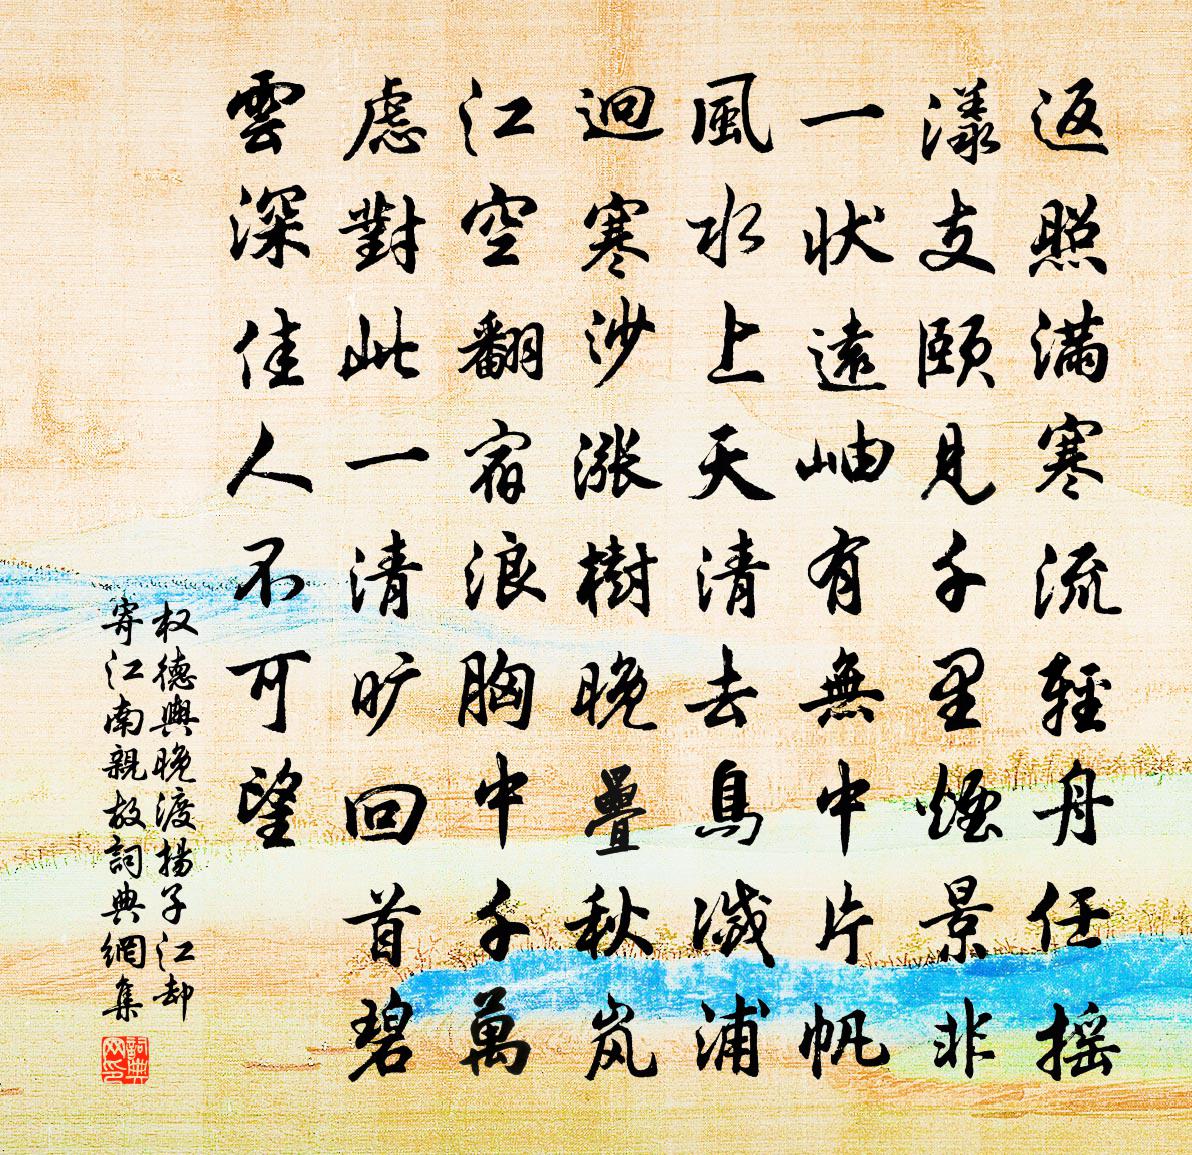 返照滿寒流輕舟任搖
漾支頤見千里煙景非
一狀遠岫有無中片帆
風水上天清去鳥滅浦
迥寒沙漲樹晚疊秋嵐
江空翻宿浪胸中千萬
慮對此一清旷回首碧
雲深佳人不可望
权德輿晚渡揚子江却
寄江南親故詞典網集